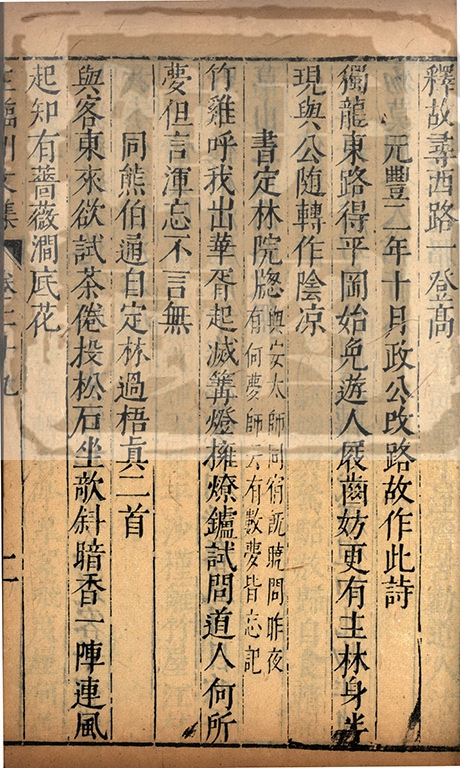 釋故尋西路一登高
元豐二年十月政公改路故作此詩
獨龍東路得平岡始免遊人屐齒妨更有主林身半
現與公隨轉作陰凉
書定林院牕
與安大師同宿既曉問昨夜
有何夢師云有數夢皆忘記
竹雞呼我出華胥起滅篝燈擁燎鑪試問道人何所
夢但言渾忘不言無
同熊伯通自定林過梧眞二首
與客東來欲試茶倦投松石坐欹斜暗香一陣連風
起知有薔薇澗底花
王臨川文集 卷二十九 二